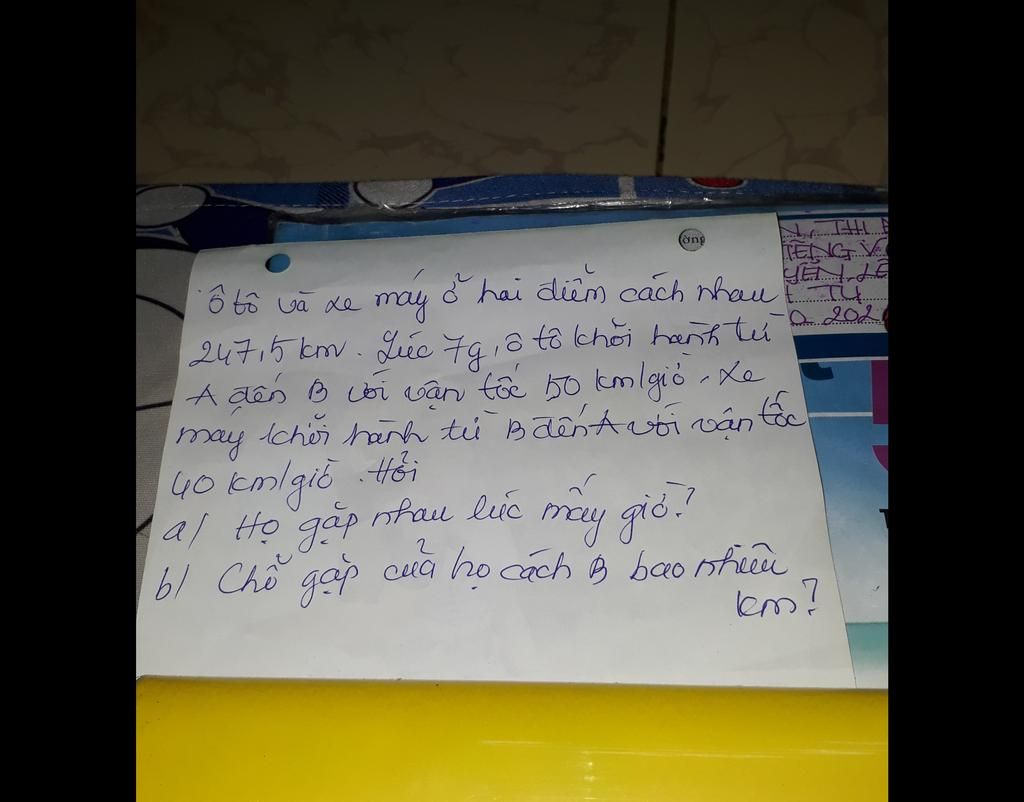 ờng
Ô tô và xe máy ở hai điểm cách nhau
247,5 km. Lúc 7g, ô tô khởi hành từ
A đến B với vận tốc 50 km/giờ. Xe
máy khởi hành từ B đến A với vận tốc
40 km/giờ. Hỏi
a/ Họ gặp nhau lúc mấy giờ?
b/ Chỗ gặp của họ cách B bao nhiêu
km?
, THI
TIẾNG V
YỄN, LÊ
TỪ
202